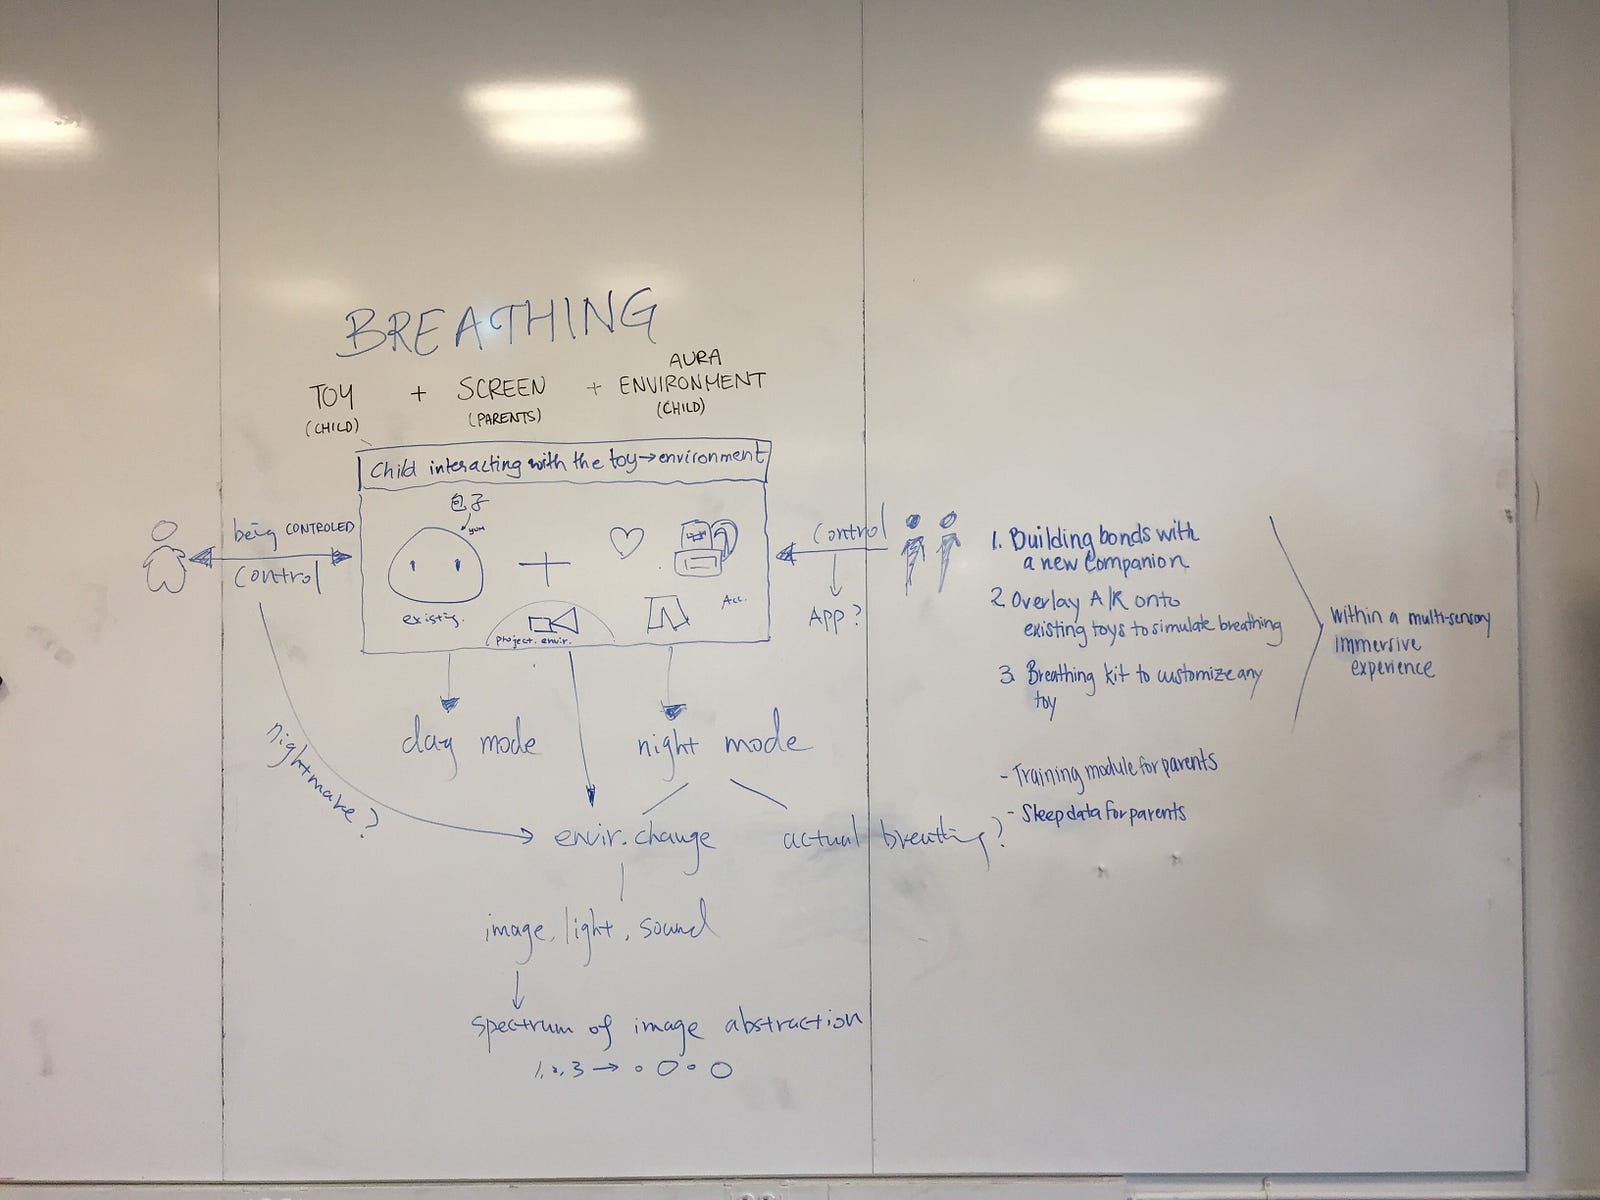 BREATHING
AURA
TOY + SCREEN + ENVIRONMENT
(CHILD) (PARENTS) (CHILD)
Child interacting with the toy→environment
包子
yum
being CONTROLED
control
existing.
project. envir.
Acc.
control
App?
day mode
night mode
nightmare?
envir. change
actual breathing?
image, light, sound
spectrum of image abstraction
1, 2, 3 → ○ ○ ○ ○
1. Building bonds with
a new companion
2. Overlay A/R onto
existing toys to simulate breathing
3. Breathing kit to customize any
toy
within a multi-sensory
immersive
experience
- Training module for parents
- Sleep data for parents